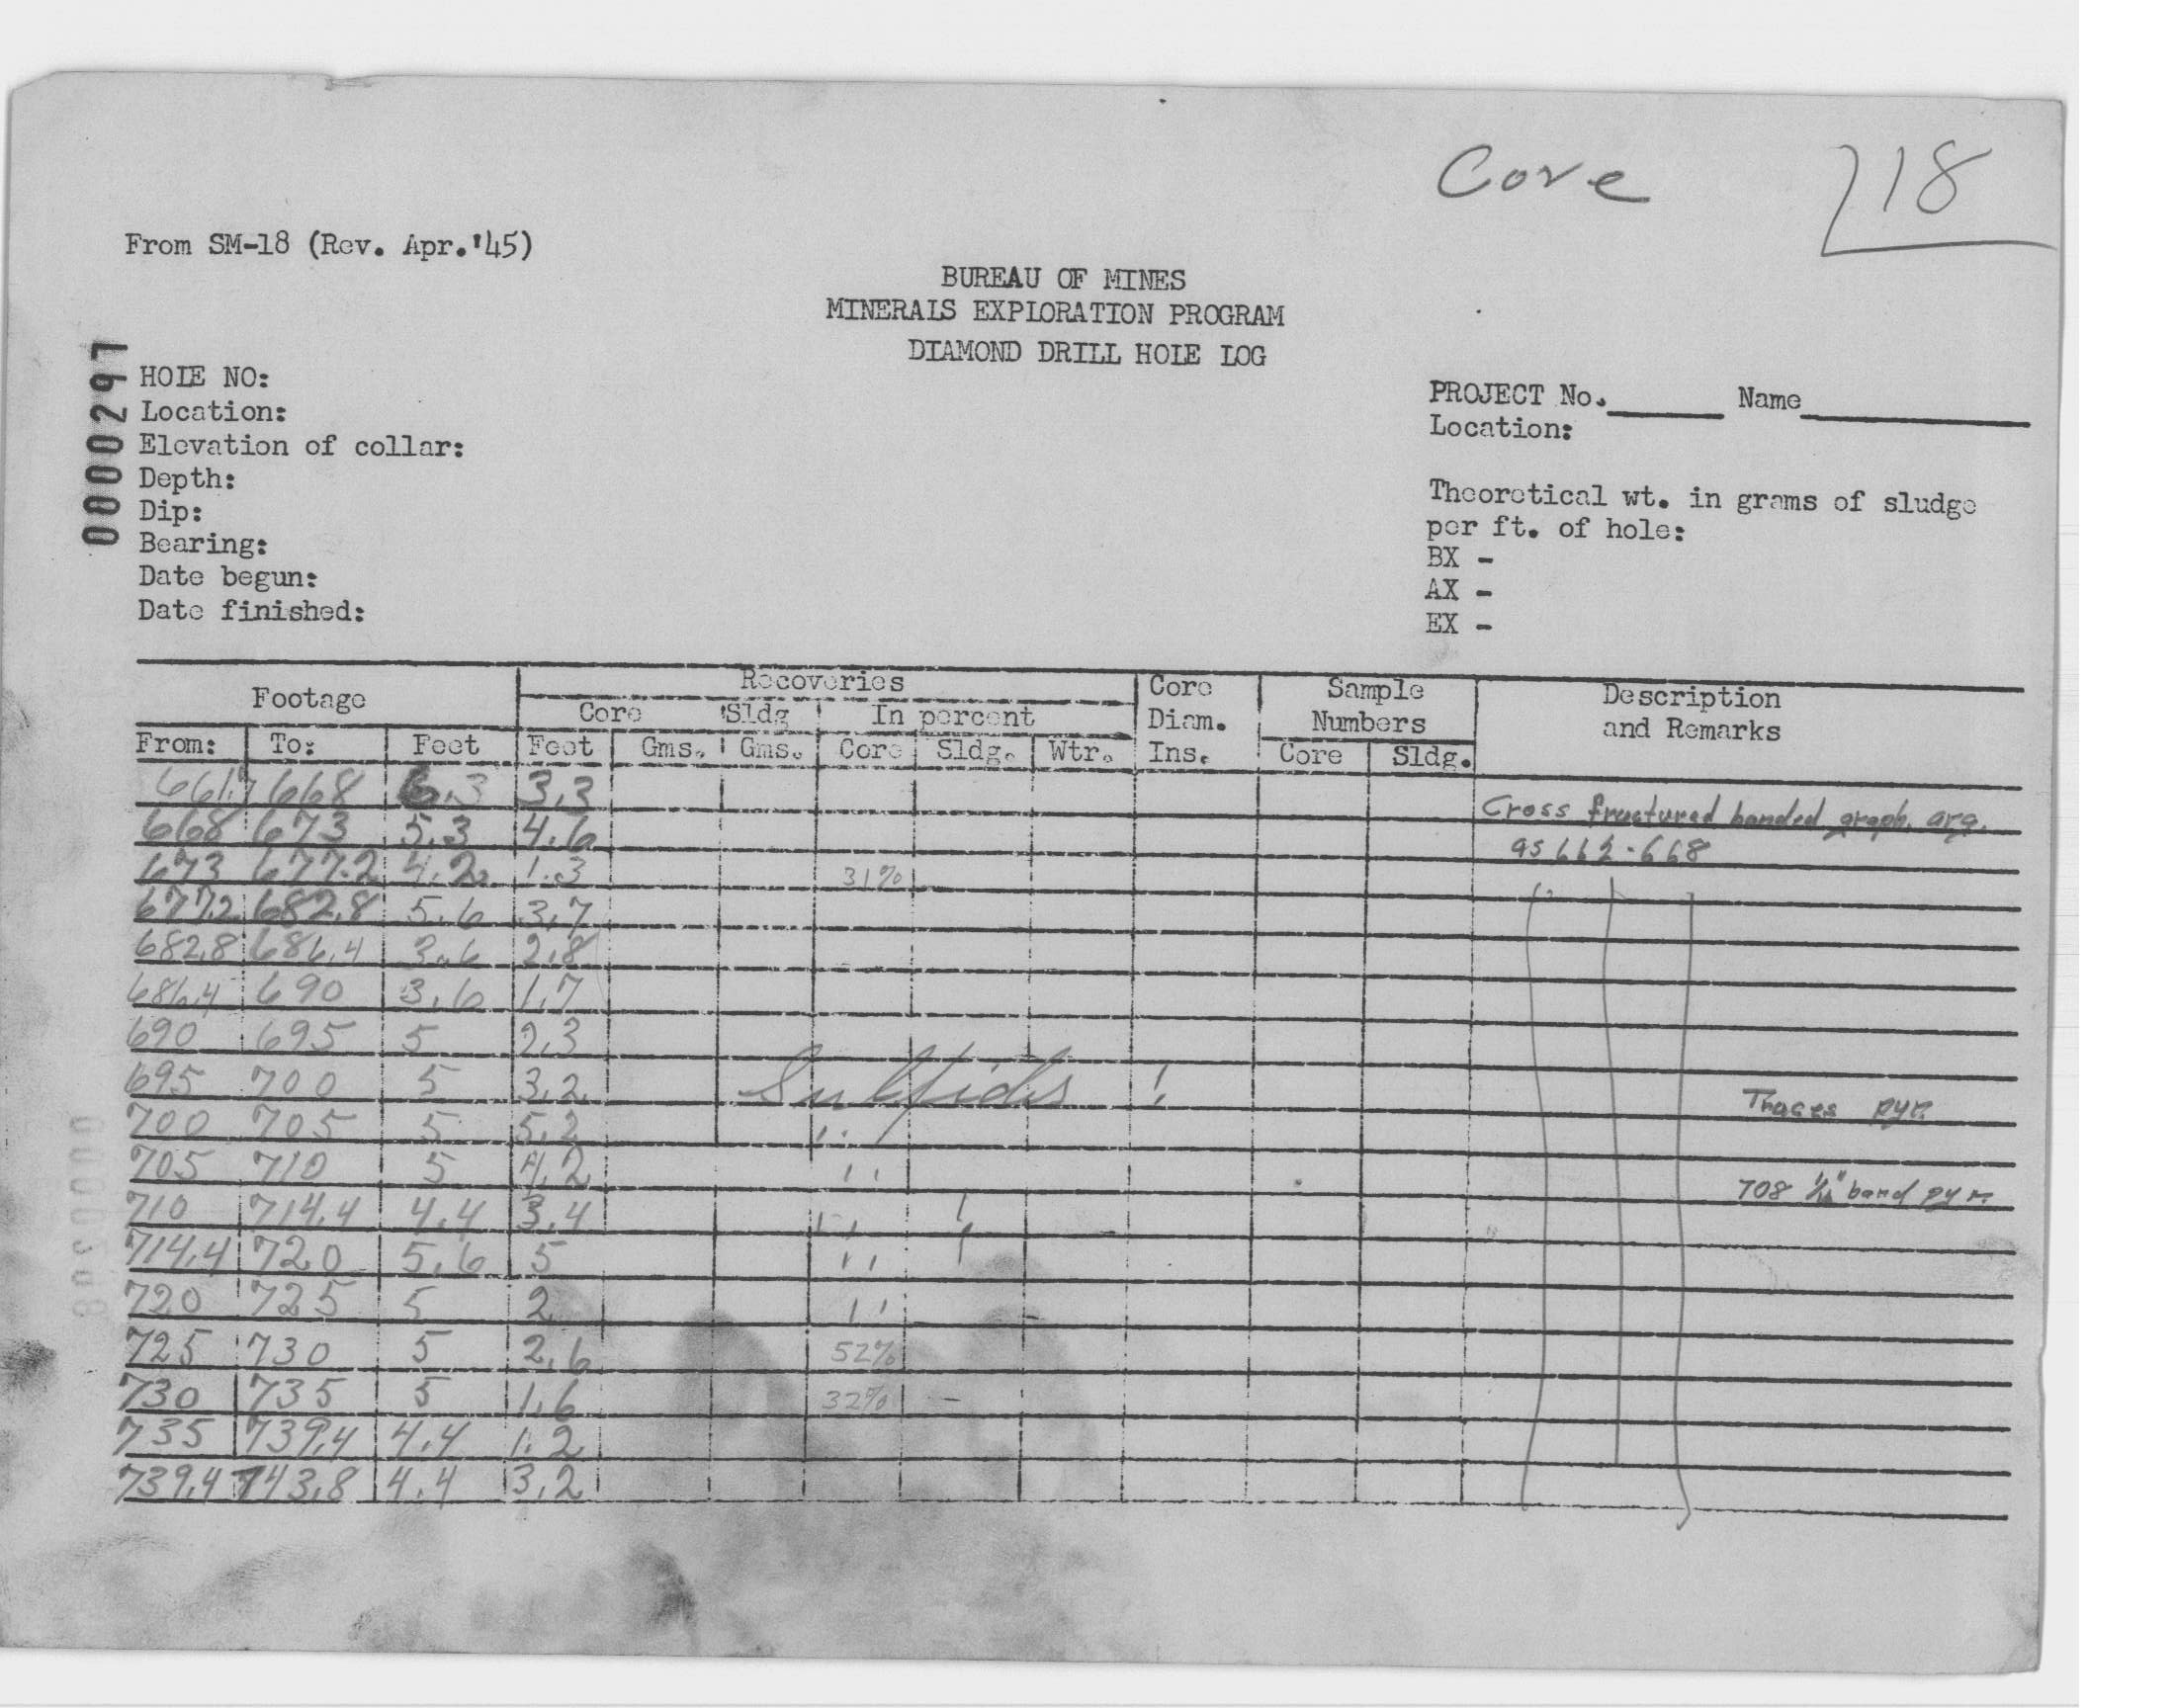 Core 718
From SM-18 (Rev. Apr.'45)
BUREAU OF MINES
MINERALS EXPLORATION PROGRAM
DIAMOND DRILL HOLE LOG
0000297
HOLE NO:
Location:
Elevation of collar:
Depth:
Dip:
Bearing:
Date begun:
Date finished:
PROJECT No. Name
Location:
Theoretical wt. in grams of sludge
per ft. of hole:
BX -
AX -
EX -
Footage Recoveries Core Diam. Ins. Sample Numbers Description and Remarks
Core Sldg In percent
From: To: Feet Feet Gms. Gms. Core Sldg. Wtr. Core Sldg.
661.7 668 6.3 3.3 Cross fractured banded graph. arg.
668 673 5.3 4.6 as 662-668
673 677.2 4.2 1.3 31%
677.2 682.8 5.6 3.7
682.8 686.4 3.6 2.8
686.4 690 3.6 1.7
690 695 5 2.3
695 700 5 3.2 Sulfides ! Traces pyr.
700 705 5 5.2 ''
705 710 5 4.2 '' 708 band pyr.
710 714.4 4.4 3.4 ''
714.4 720 5.6 5 ''
720 725 5 2 ''
725 730 5 2.6 52%
730 735 5 1.6 32% -
735 739.4 4.4 1.2
739.4 743.8 4.4 3.2